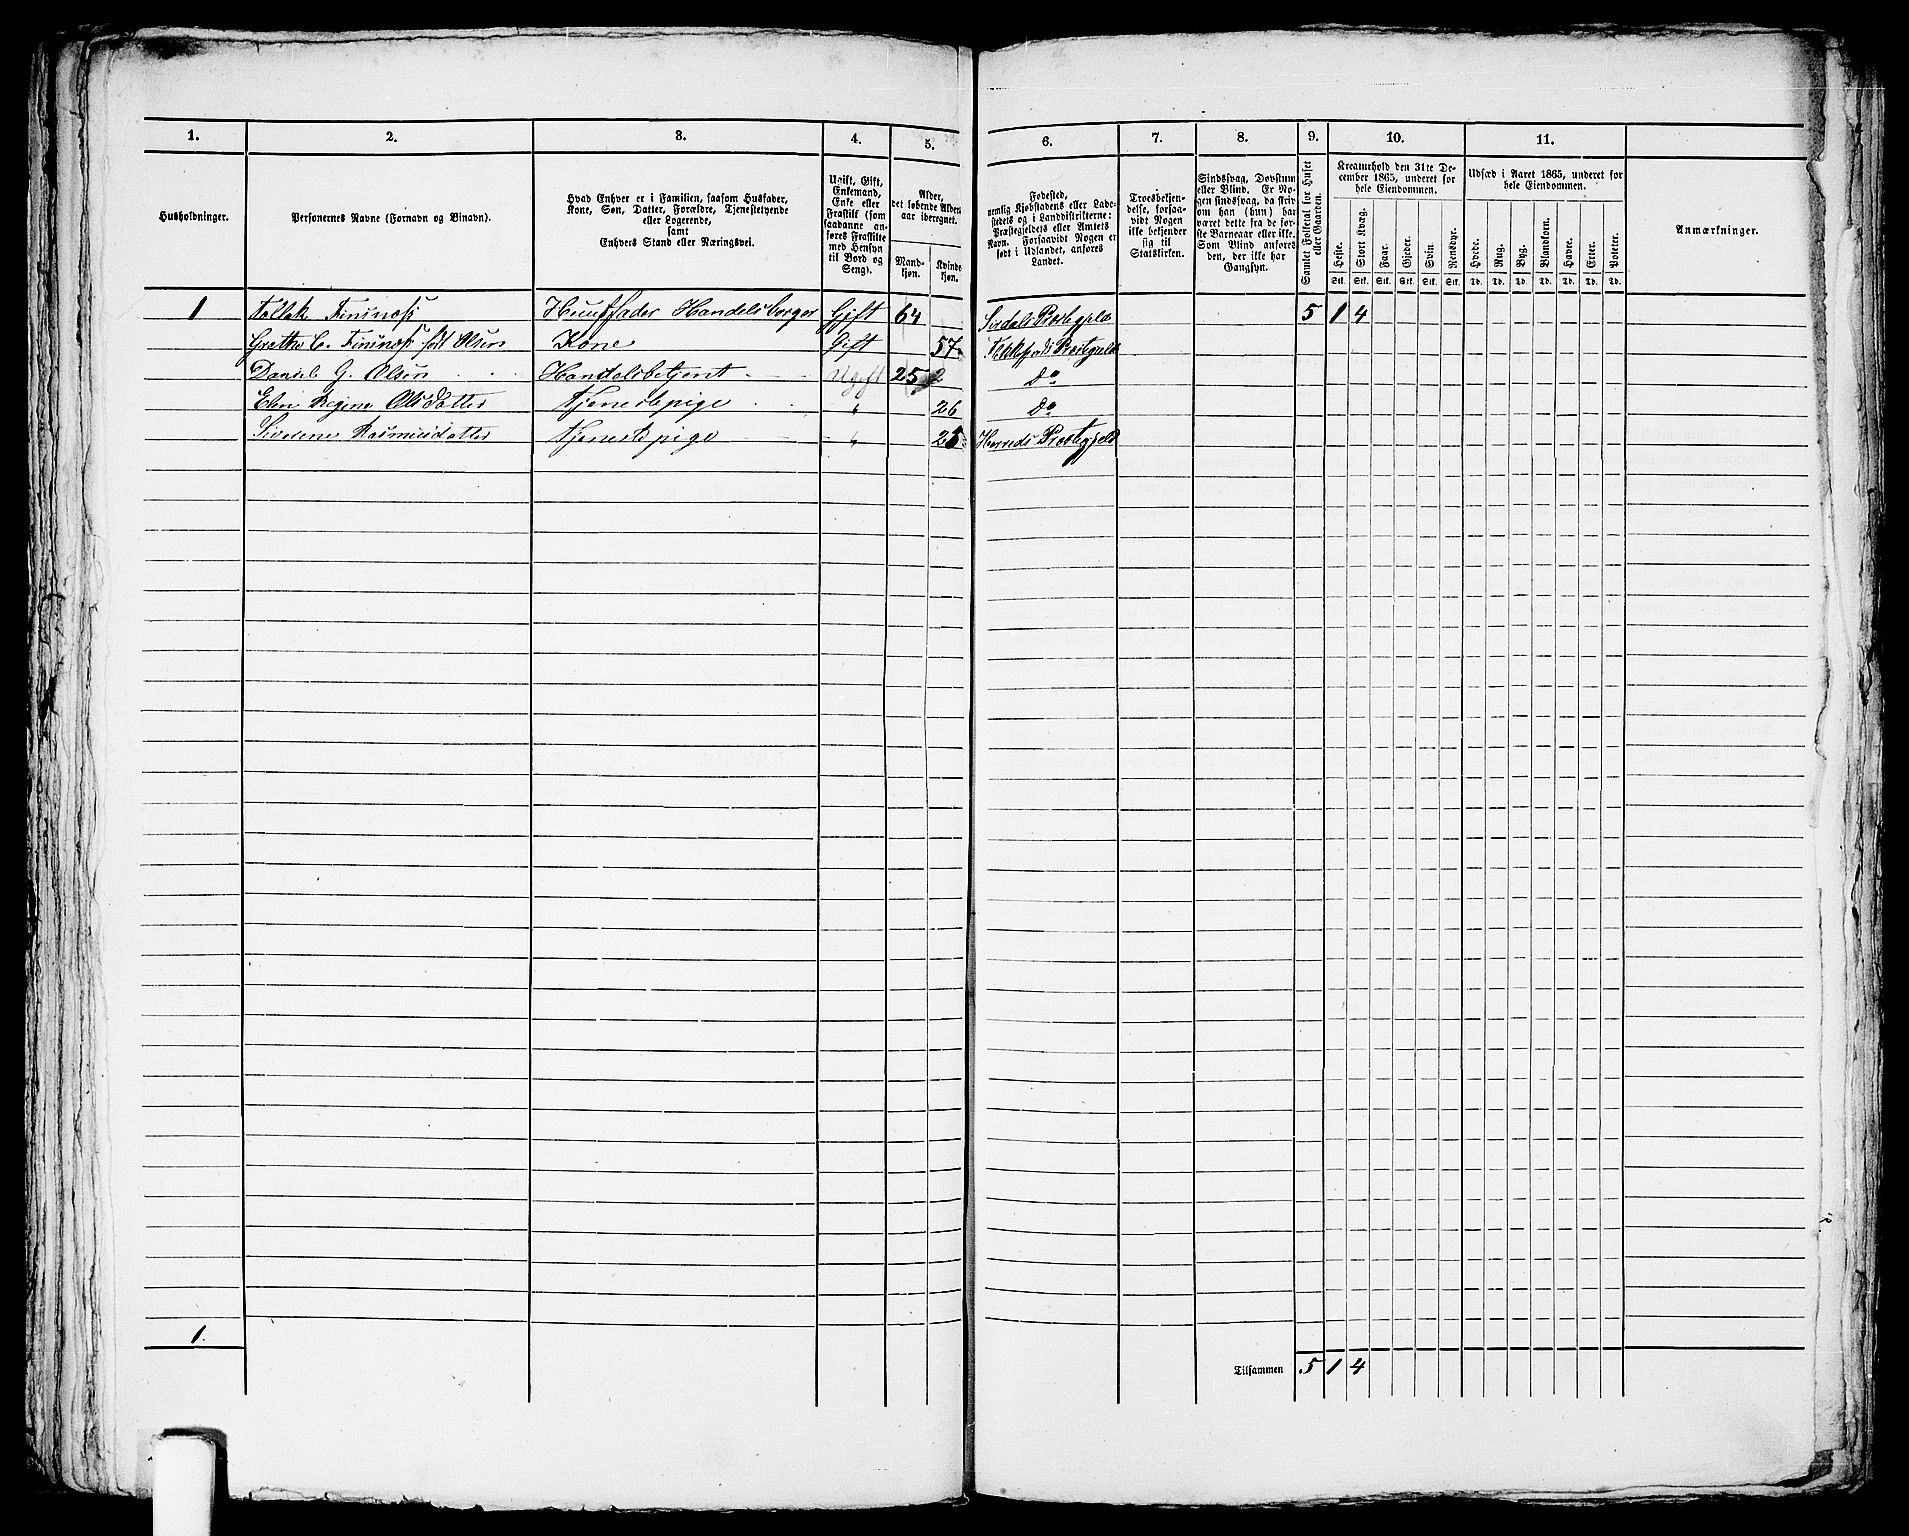 1. 2. 3. 4. 5. 6. 7. 8. 9. 10. 11.
Husholdninger.
Personernes Navne (Fornavn og Binavn).
Hvad Enhver er i Familien, saasom Husfader,
Kone, Søn, Datter, Forældre, Tjenestetyende
eller Logerende,
samt
Enhvers Stand eller Næringsvei.
Ugift, Gift,
Enkemand,
Enke eller
Fraskilt (som
saadanne an-
føres Fraskilte
med Hensyn
til Bord og
Seng).
Alder,
det løbende Alders-
aar iberegnet.
Mand-
kjøn.
Kvinde-
kjøn.
Fødested,
nemlig Kjøbstadens eller Lade-
stedets og i Landdistrikterne:
Præstegjeldets eller Amtets
Navn. Forsaavidt Nogen er
født i Udlandet, anføres
Landet.
Troesbekjen-
delse, forsaa-
vidt Nogen
ikke bekjender
sig til
Statskirken.
Sindssvag, Døvstum
eller Blind. Er No-
gen sindssvag, da skriv
om han (hun) har
været dette fra de før-
ste Barneaar eller ikke.
Som Blind anføres
den, der ikke har
Gangsyn.
Samlet Folketal for Huset
eller Gaarden.
Kreaturhold den 31te De-
cember 1865, underet for
hele Eiendommen.
Heste. Stort Kvæg. Faar. Gjeder. Svin. Rensdyr.
Stk. Stk. Stk. Stk. Stk. Stk.
Udsæd i Aaret 1865, underet for
hele Eiendommen.
Hvede. Rug. Byg. Blandkorn. Havre. Erter. Poteter.
Td. Td. Td. Td. Td. Td. Td.
Anmærkninger.
1 Huusfader Handelsborger Gift 64 Sirdals 5 1 4
Grethe C. født Olsen Kone Gift 57 Flekkefjords Præstegield
Daniel G. Olsen Handelsbetjent Ugift 25 Do
Elen Regine Olsdatter Tjenestepige " 26 Do
Siverine Rasmusdatter Tjenestepige " 25 Herreds Præstegjeld
1.
Tilsammen 5 1 4